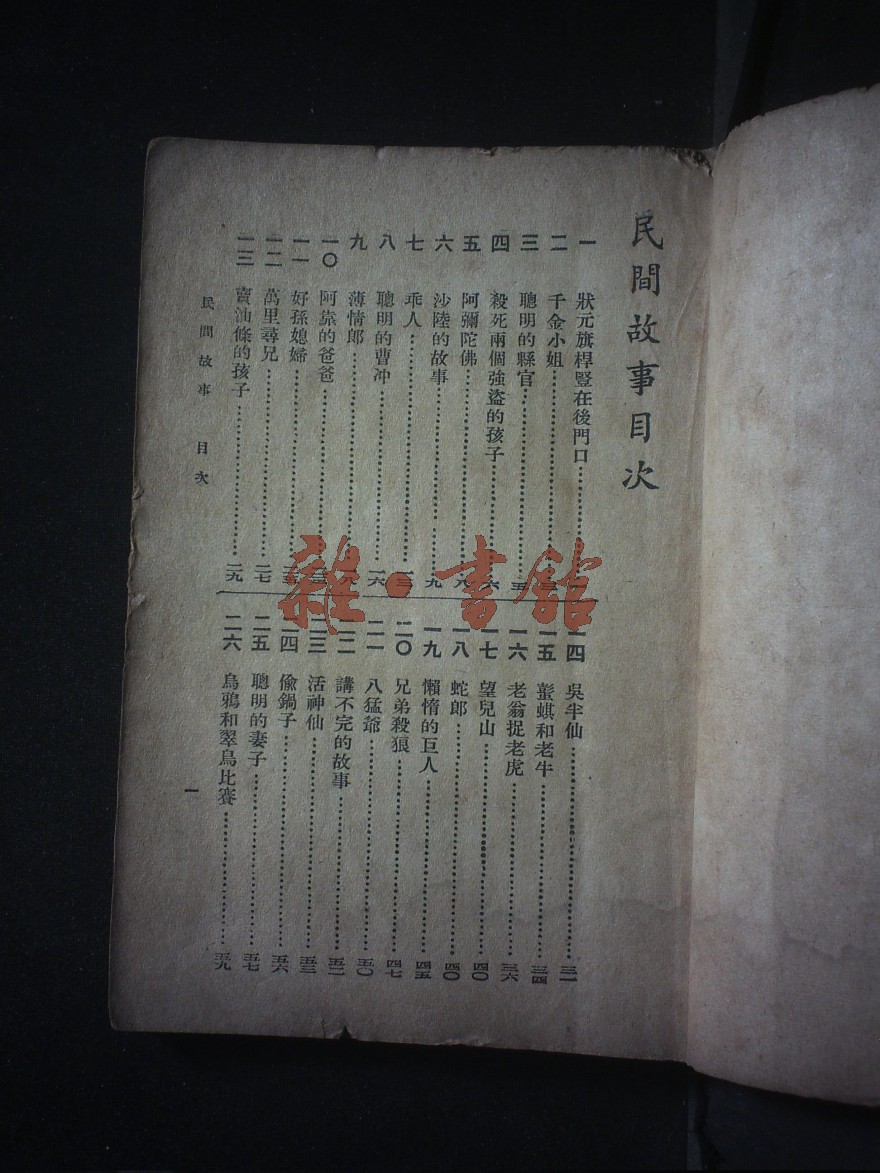 民間故事目次
一 狀元旗桿豎在後門口……………
二 千金小姐……………
三 聰明的縣官……………五
四 殺死兩個強盜的孩子……………六
五 阿彌陀佛……………八
六 沙陸的故事……………九
七 乖人……………一三
八 聰明的曹冲……………一六
九 薄情郎……………
一〇 阿靠的爸爸……………
一一 好孫媳婦……………二五
一二 萬里尋兄……………二七
一三 賣油條的孩子……………二九
一四 吳半仙……………三一
一五 蜑蜞和老牛……………三四
一六 老翁捉老虎……………三六
一七 望兒山……………四〇
一八 蛇郎……………四〇
一九 懶惰的巨人……………四五
二〇 兄弟殺狼……………四七
二一 八猛爺……………五〇
二二 講不完的故事……………五二
二三 活神仙……………五三
二四 偸鍋子……………五六
二五 聰明的妻子……………五七
二六 烏鴉和翠鳥比賽……………五九
民間故事 目次
一
雜·書館